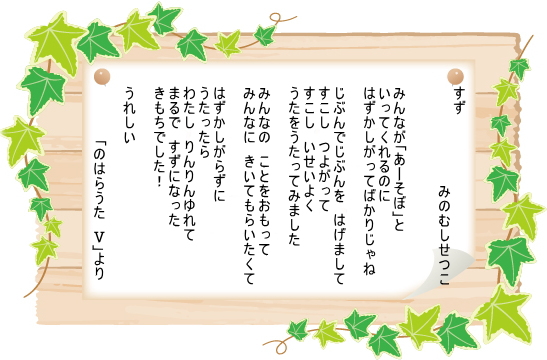 すず
みのむしせつこ
みんなが「あーそぼ」と
いってくれるのに
はずかしがってばかりじゃね
じぶんでじぶんを はげまして
すこし つよがって
すこし いせいよく
うたをうたってみました
みんなの ことをおもって
みんなに きいてもらいたくて
はずかしがらずに
うたったら
わたし りんりんゆれて
まるで すずになった
きもちでした！
うれしい
「のはらうた Ⅴ」より